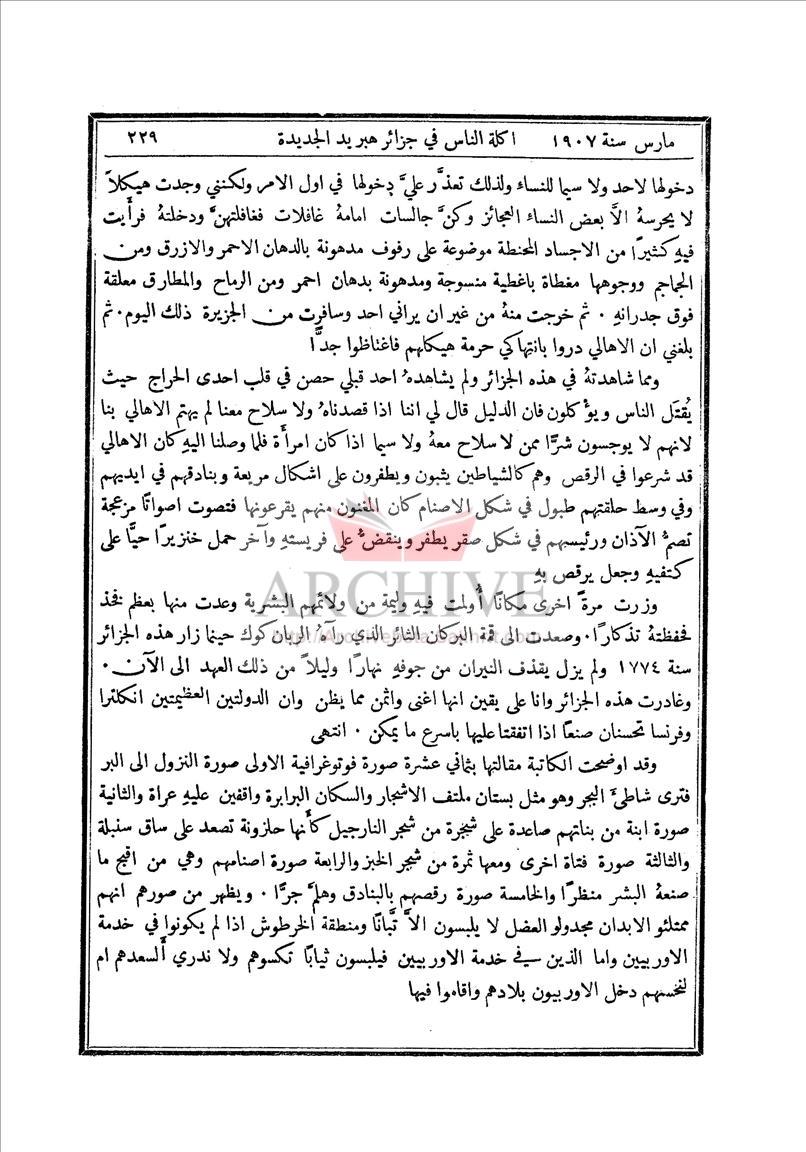 مارس سنة ١٩٠٧ اكلة الناس في جزائر هبريد الجديدة ٢٢٩
دخولها لاحد ولا سيما للنساء ولذلك تعذَّر عليَّ دخولها في اول الامر ولكنني وجدت هيكلاً
لا يحرسهُ الاَّ بعض النساء العجائز وكنَّ جالسات امامهُ غافلات فغافلتهنَّ ودخلتهُ فرأَيت
فيهِ كثيرًا من الاجساد المحنطة موضوعة على رفوف مدهونة بالدهان الاحمر والازرق ومن
الجماجم ووجوهها مغطاة باغطية منسوجة ومدهونة بدهان احمر ومن الرماح والمطارق معلقة
فوق جدرانهِ . ثم خرجت منهُ من غير ان يراني احد وسافرت من الجزيرة ذلك اليوم. ثم
بلغني ان الاهالي دروا بانتهاكي حرمة هيكلهم فاغتاظوا جدًّا
ومما شاهدتهُ في هذه الجزائر ولم يشاهدهُ احد قبلي حصن في قلب احدى الحراج حيث
يُقتَل الناس ويؤكلون فان الدليل قال لي اننا اذا قصدناهُ ولا سلاح معنا لم يهتم الاهالي بنا
لانهم لا يوجسون شرًّا ممن لا سلاح معهُ ولا سيما اذا كان امرأَة فلما وصلنا اليهِ كان الاهالي
قد شرعوا في الرقص وهم كالشياطين يثبون ويطفرون على اشكال مريعة وبنادقهم في ايديهم
وفي وسط حلقتهم طبول في شكل الاصنام كان المغنون منهم يقرعونها فتصوت اصواتًا مزعجة
تصمُّ الآذان ورئيسهم في شكل صقر يطفر وينقضُّ على فريستهِ وآخر حمل خنزيرًا حيًّا على
كتفيهِ وجعل يرقص بهِ
ARCHIVE
وزرت مرة اخرى مكانًا أُولمت فيهِ وليمة من ولائمهم البشرية وعدت منها بعظم فخذ
فحفظتهُ تذكارًا. وصعدت الى قمة البركان الثائر الذي رآهُ الربان كوك حينما زار هذه الجزائر
سنة ١٧٧٤ ولم يزل يقذف النيران من جوفهِ نهارًا وليلاً من ذلك العهد الى الآن .
وغادرت هذه الجزائر وانا على يقين انها اغنى واثمن مما يظن وان الدولتين العظيمتين انكلترا
وفرنسا تحسنان صنعًا اذا اتفقتا عليها باسرع ما يمكن . انتهى
وقد اوضحت الكاتبة مقالتها بثماني عشرة صورة فوتوغرافية الاولى صورة النزول الى البر
فترى شاطئَ البحر وهو مثل بستان ملتف الاشجار والسكان البرابرة واقفين عليهِ عراة والثانية
صورة ابنة من بناتهم صاعدة على شجرة من شجر النارجيل كأَنها حلزونة تصعد على ساق سنبلة
والثالثة صورة فتاة اخرى ومعها ثمرة من شجر الخبز والرابعة صورة اصنامهم وهي من اقبح ما
صنعهُ البشر منظرًا والخامسة صورة رقصهم بالبنادق وهلمَّ جرًّا . ويظهر من صورهم انهم
ممتلئو الابدان مجدولو العضل لا يلبسون الاَّ تبَّانًا ومنطقة الخرطوش اذا لم يكونوا في خدمة
الاوربيين واما الذين في خدمة الاوربيين فيلبسون ثيابًا تكسوهم ولا ندري أَلسعدهم ام
لنحسهم دخل الاوربيون بلادهم واقاموا فيها